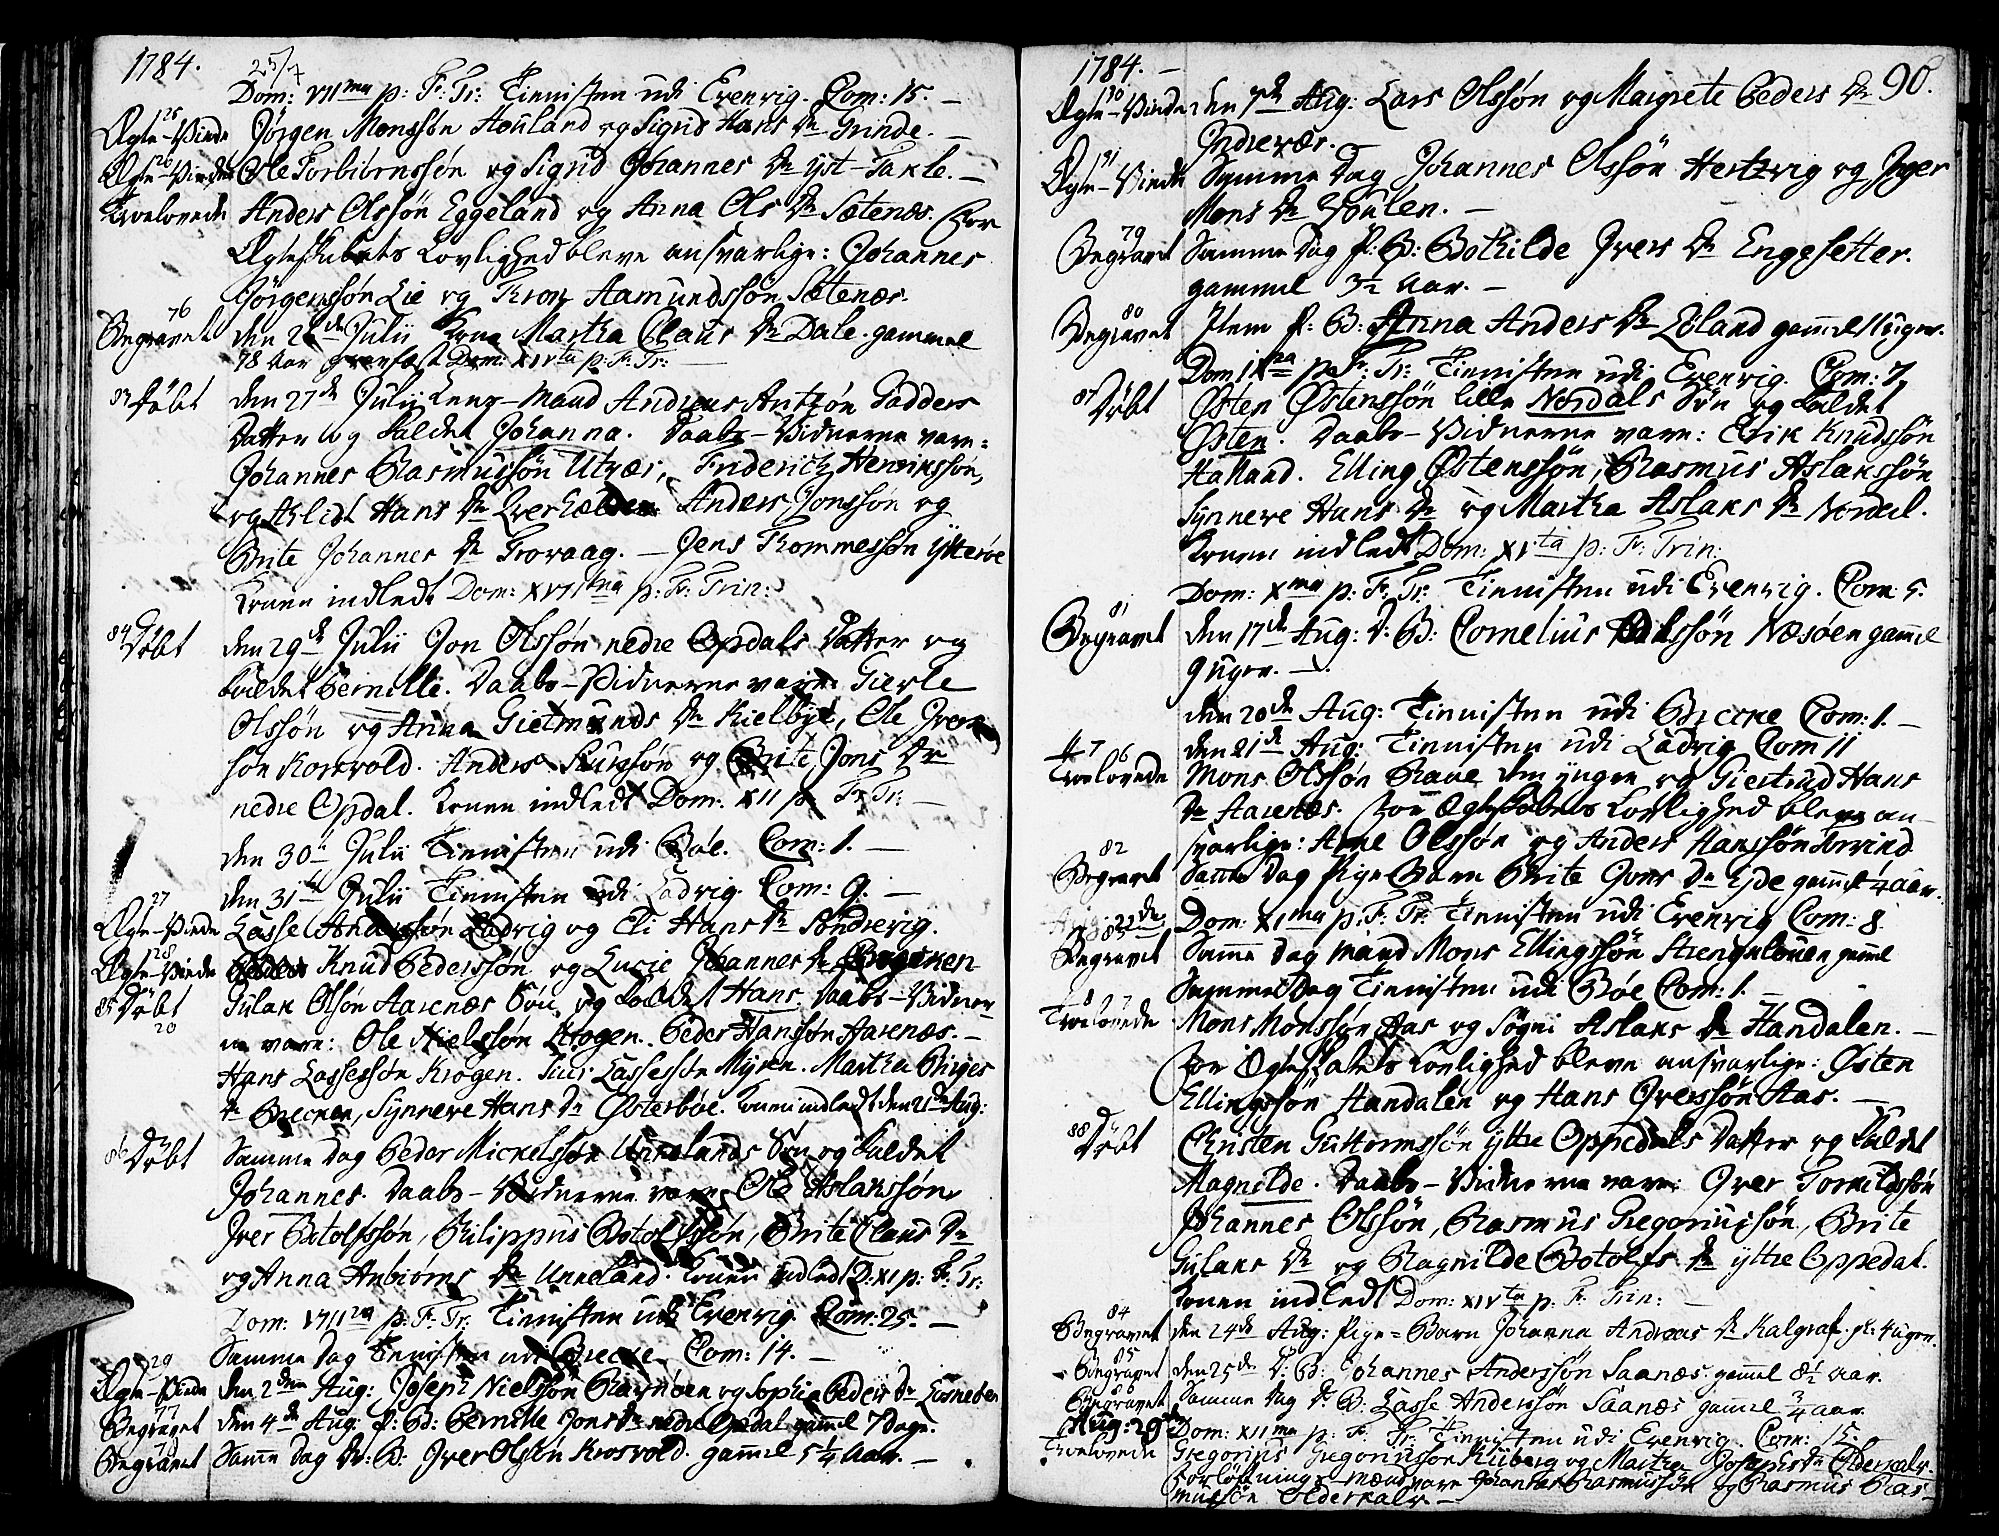 1784.
25/7
Dom: VII ma p: Fr: Tr: Tienisten udi Evenvig. Com: 15. —
25
Ægte-Viede Jørgen Monssøn Houland og Sigrid Hans Dr Grinde. —
26
Ægte-Viede Ole Torbiörnssön og Sigrid Johannes Dr yst-Takle. —
Trolovede Anders Olssön Eggeland og Anna Ols Dr Sætenæs. For
Ægteskabets Lovlighed bleve ansvarlige: Johannes
Jörgenssön Lie og Amundssön Sætenæs.
76
Begravet den 26 de Julii Kone Martha Claus Dr Dale. gammel
78 Aar Dom: XIV ta p: Fr: Tr:
83 Døbt den 27 de Julii Mand Andreas
Datter og kaldet Johanna. Daabs-Vidnerne vare:
Johannes Rasmussön Utvær, Friderich Henrikssön,
og Hans Dr Anders Jonssön og
Brite Johannes Dr Trovaag. — Jens Thommessøn Ytterøe
Konen indledt Dom: XVII ma p: Fr: Trin:
84 Døbt den 29 de Julii Jon Olssön nedre Opdals Datter og
kaldet Pernille. Daabs-Vidnerne vare Gierle
Olssøn og Anna Gietmunds Dr Kielbye, Ole Ivers
søn Korsvold. Anders og Brite Jons Dr
nedre Opdal. Konen indledt Dom: XII p: Fr: Tr: —
den 30 Julii Tienisten udi Bøe. Com: 1. —
den 31 Julii Tienisten udi Ladvig Com: 9. —
27
Ægte-Viede Lasse Anderssøn Ladvig og Eli Hans Dr Søndrevig.
28
Ægte-Viede Knud Pederssön og Lucie Johannes Dr
85 Døbt Gulak Olssön Aarenæs Søn, og kaldet Hans. Daabs-Vidner
20
ne vare: Ole Nielssøn Krogen. Peder Hanssøn Aarenæs. —
Hans Lassessøn Krogen. Lassessøn Myren. Martha Birges
Dr Brecken, Synneve Hans Dr Østerbøe. Konen indledt den 21 de Aug:
86 Døbt Samme Dag Peder Mickelssøn Unnelands Søn og kaldet
Johannes. Daabs-Vidnerne vare Ole Aslakssøn
Iver Botolfssøn, Philippus Botolfssøn, Brite Claus Dr
og Anna Anbiørns Dr Unneland. Konen indledt D: XI p: Fr: Tr:
Dom: VIII va p: Fr: Tr: Tienisten udi Evenvig Com: 25. —
Samme Dag Tienisten udi Brecke Com: 14. —
29
Ægte-Viede den 2 den Aug: Joseph Nielssøn og Sophia Peders Dr
77
Begravet den 4 de Aug: P: B: Pernille Jons Dr nedre Opdal gamel 7 Dage.
78
Begravet Same Dag Dr: B: Iver Olssøn Korsvold. gamel 5 1/4 Aar. —
1784. —
90.
30
Ægte-Viede den 7 de Aug: Lars Olssøn og Margrete Peders Dr
Indrevær.
31
Ægte-Viede Samme Dag Johannes Olssøn Hertzvig og Inger
Mons Dr Woulen. —
79
Begravet Samme Dag P: B: Bothilde Ivers Dr Engesetter.
gammel 3 1/2 Aar. —
80
Begravet Item P: B: Anna Anders Dr Løland gamel uger.
Dom IX na p: Fr: Tr: Tienisten udi Evenvig. Com: 7.
87 Døbt Østen Østenssøn lille Nordals Søn og kaldet
Østen. Daabs-Vidnerne vare: Erik Knudssøn
Halland. Elling Østenssøn, Rasmus Aslakssøn
Synneve Hans Dr og Martha Aslaks Dr Nordal.
Konen indledt Dom: XV ta p: Fr: Trin:
Dom: X ma p: Fr: Tr: Tienisten udi Evenvig. Com: 5.
81
Begravet den 17 de Aug: D: B: Cornelius Olssøn Næsøen gamel
9 uger. —
den 20 de Aug: Tienisten udi Brecke Com: 1. —
den 21 de Aug: Tienisten udi Ladvig Com 11
6
Trolovede Mons Olssøn Raue den yngre og Giertrud Hans
Dr Aarenæs. For Ægteskabets Lovlighed bleve an-
svarlige: Arne Olssøn og Anders Hanssøn Torvind
82
Begravet Same Dag Pige-Barn Brite Jons Dr Eide gamel 1/4 Aar.
Aug: 22 de Dom: XI ma p: Fr: Tr: Tienisten udi Evenvig Com: 8.
83
Begravet Same Dag Mand Mons Ellingssøn gamel
Samme Dag Tienisten udi Bøe Com: 1. —
7
Trolovede Mons Monssøn Aas og Søgni Aslaks Dr Handalen. —
For Ægteskabets Lovlighed bleve ansvarlige: Østen
Ellingssøn Handalen og Hans Iverssøn Aas. —
88 Døbt Christen Guttormssøn yttre Oppedals Datter og kaldet
Magnilde. Daabs-Vidnerne vare: Iver Torkildssøn
Johannes Olssøn, Rasmus Gregoriussøn, Brite
Gulaks Dr og Ragnilde Botolfs Dr yttre Oppedal.
Konen indledt Dom: XIV ta p: Fr: Trin: —
84
Begravet den 24 de Aug: Pige-Barn Johanna Andreas Dr Kalgraf. gl: 4 ugen.
85
Begravet den 25 de D: B: Johannes Anderssøn Saanæs gamel 8 1/2 Aar.
86
Begravet Samme Dag Dr: B: Lasse Anderssøn Saanæs gamel 3/4 Aar
Aug: 29 de Dom: XII ma p: Fr: Tr: Tienisten udi Evenvig. Com: 15.
Trolovede Gregorius Gregoriussøn Kiiberg og Martha Josephs Dr Olderkalv
Forlovnings mænd vare Johannes Rasmussøn og Rasmus Ras-
mussøn Olderkalv —